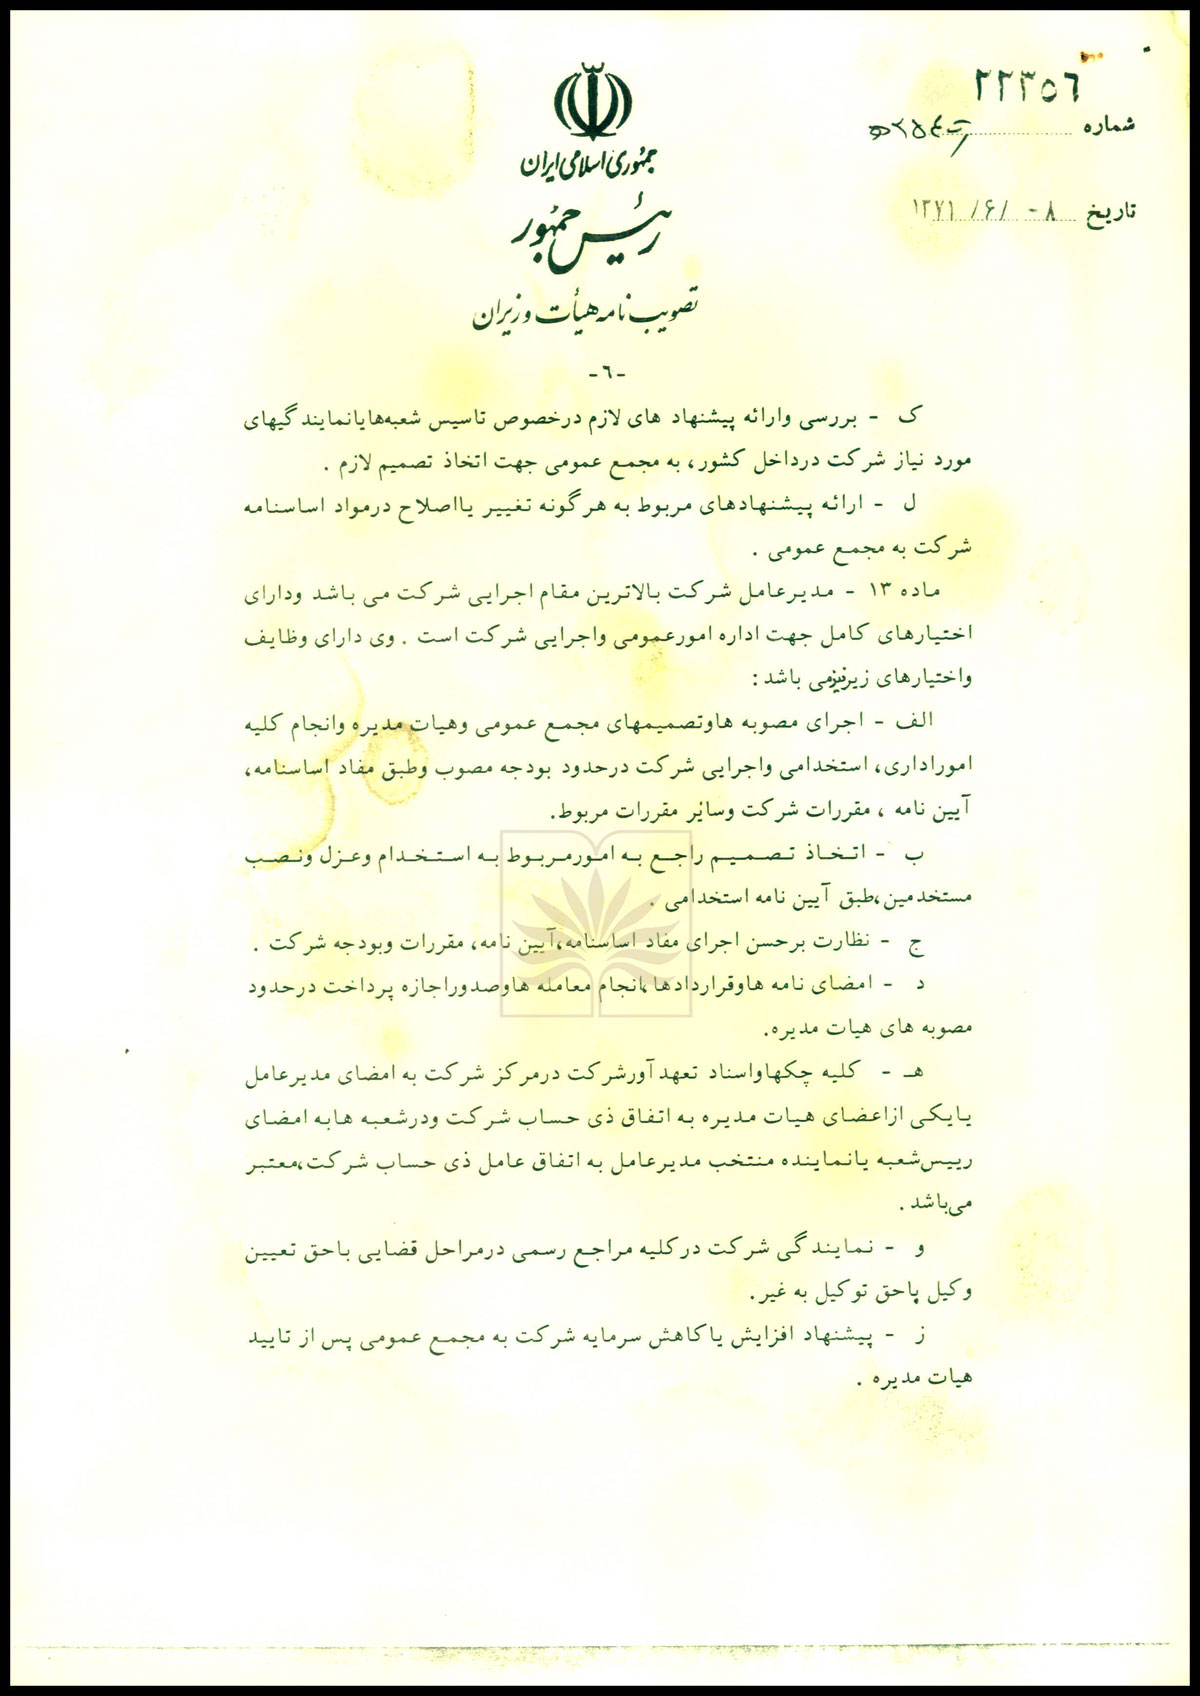 ۲۲۳۵۶
شماره
تاریخ ۸ - /۶/ ۱۳۷۱
جمهوری اسلامی ایران
رئیس جمهور
تصویب نامه هیأت وزیران
-۶-
ک - بررسی وارائه پیشنهاد های لازم درخصوص تاسیس شعبه‌هایانمایندگیهای
مورد نیاز شرکت درداخل کشور، به مجمع عمومی جهت اتخاذ تصمیم لازم .
ل - ارائه پیشنهادهای مربوط به هرگونه تغییر یااصلاح درمواد اساسنامه
شرکت به مجمع عمومی .
ماده ۱۳ - مدیرعامل شرکت بالاترین مقام اجرایی شرکت می باشد ودارای
اختیارهای کامل جهت اداره امورعمومی واجرایی شرکت است . وی دارای وظایف
واختیارهای زیرنیزمی باشد :
الف - اجرای مصوبه هاوتصمیمهای مجمع عمومی وهیات مدیره وانجام کلیه
اموراداری، استخدامی واجرایی شرکت درحدود بودجه مصوب وطبق مفاد اساسنامه،
آیین نامه ، مقررات شرکت وسایر مقررات مربوط.
ب - اتخاذ تصمیم راجع به امورمربوط به استخدام وعزل ونصب
مستخدمین،طبق آیین نامه استخدامی .
ج - نظارت برحسن اجرای مفاد اساسنامه،آیین نامه، مقررات وبودجه شرکت .
د - امضای نامه هاوقراردادها،انجام معامله هاوصدوراجازه پرداخت درحدود
مصوبه های هیات مدیره.
هـ - کلیه چکهاواسناد تعهدآورشرکت درمرکز شرکت به امضای مدیرعامل
یایکی ازاعضای هیات مدیره به اتفاق ذی حساب شرکت ودرشعبه هابه امضای
رییس‌شعبه یانماینده منتخب مدیرعامل به اتفاق عامل ذی حساب شرکت،معتبر
می‌باشد .
و - نمایندگی شرکت درکلیه مراجع رسمی درمراحل قضایی باحق تعیین
وکیل باحق توکیل به غیر.
ز - پیشنهاد افزایش یاکاهش سرمایه شرکت به مجمع عمومی پس از تایید
هیات مدیره .